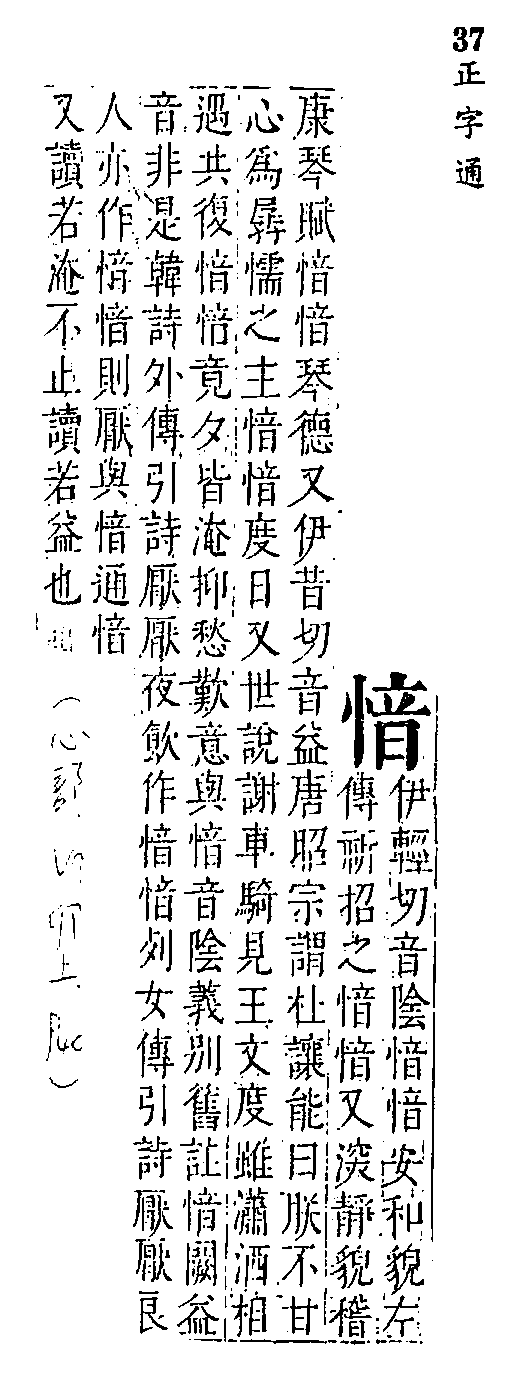 37
正字通
愔
伊輕切音陰愔愔安和貌左
傳祈招之愔愔又深靜貌嵇
康琴賦愔愔琴德又伊昔切音益唐昭宗謂杜讓能曰朕不甘
心爲孱懦之主愔愔度日又世說謝車騎見王文度雖瀟洒相
遇其復愔愔竟夕皆淹抑愁歎意與愔音陰義別舊註愔闕益
音非是韓詩外傳引詩厭厭夜飮作愔愔列女傳引詩厭厭良
人亦作愔愔則厭與愔通愔
又讀若淹不止讀若益也
（心部
上